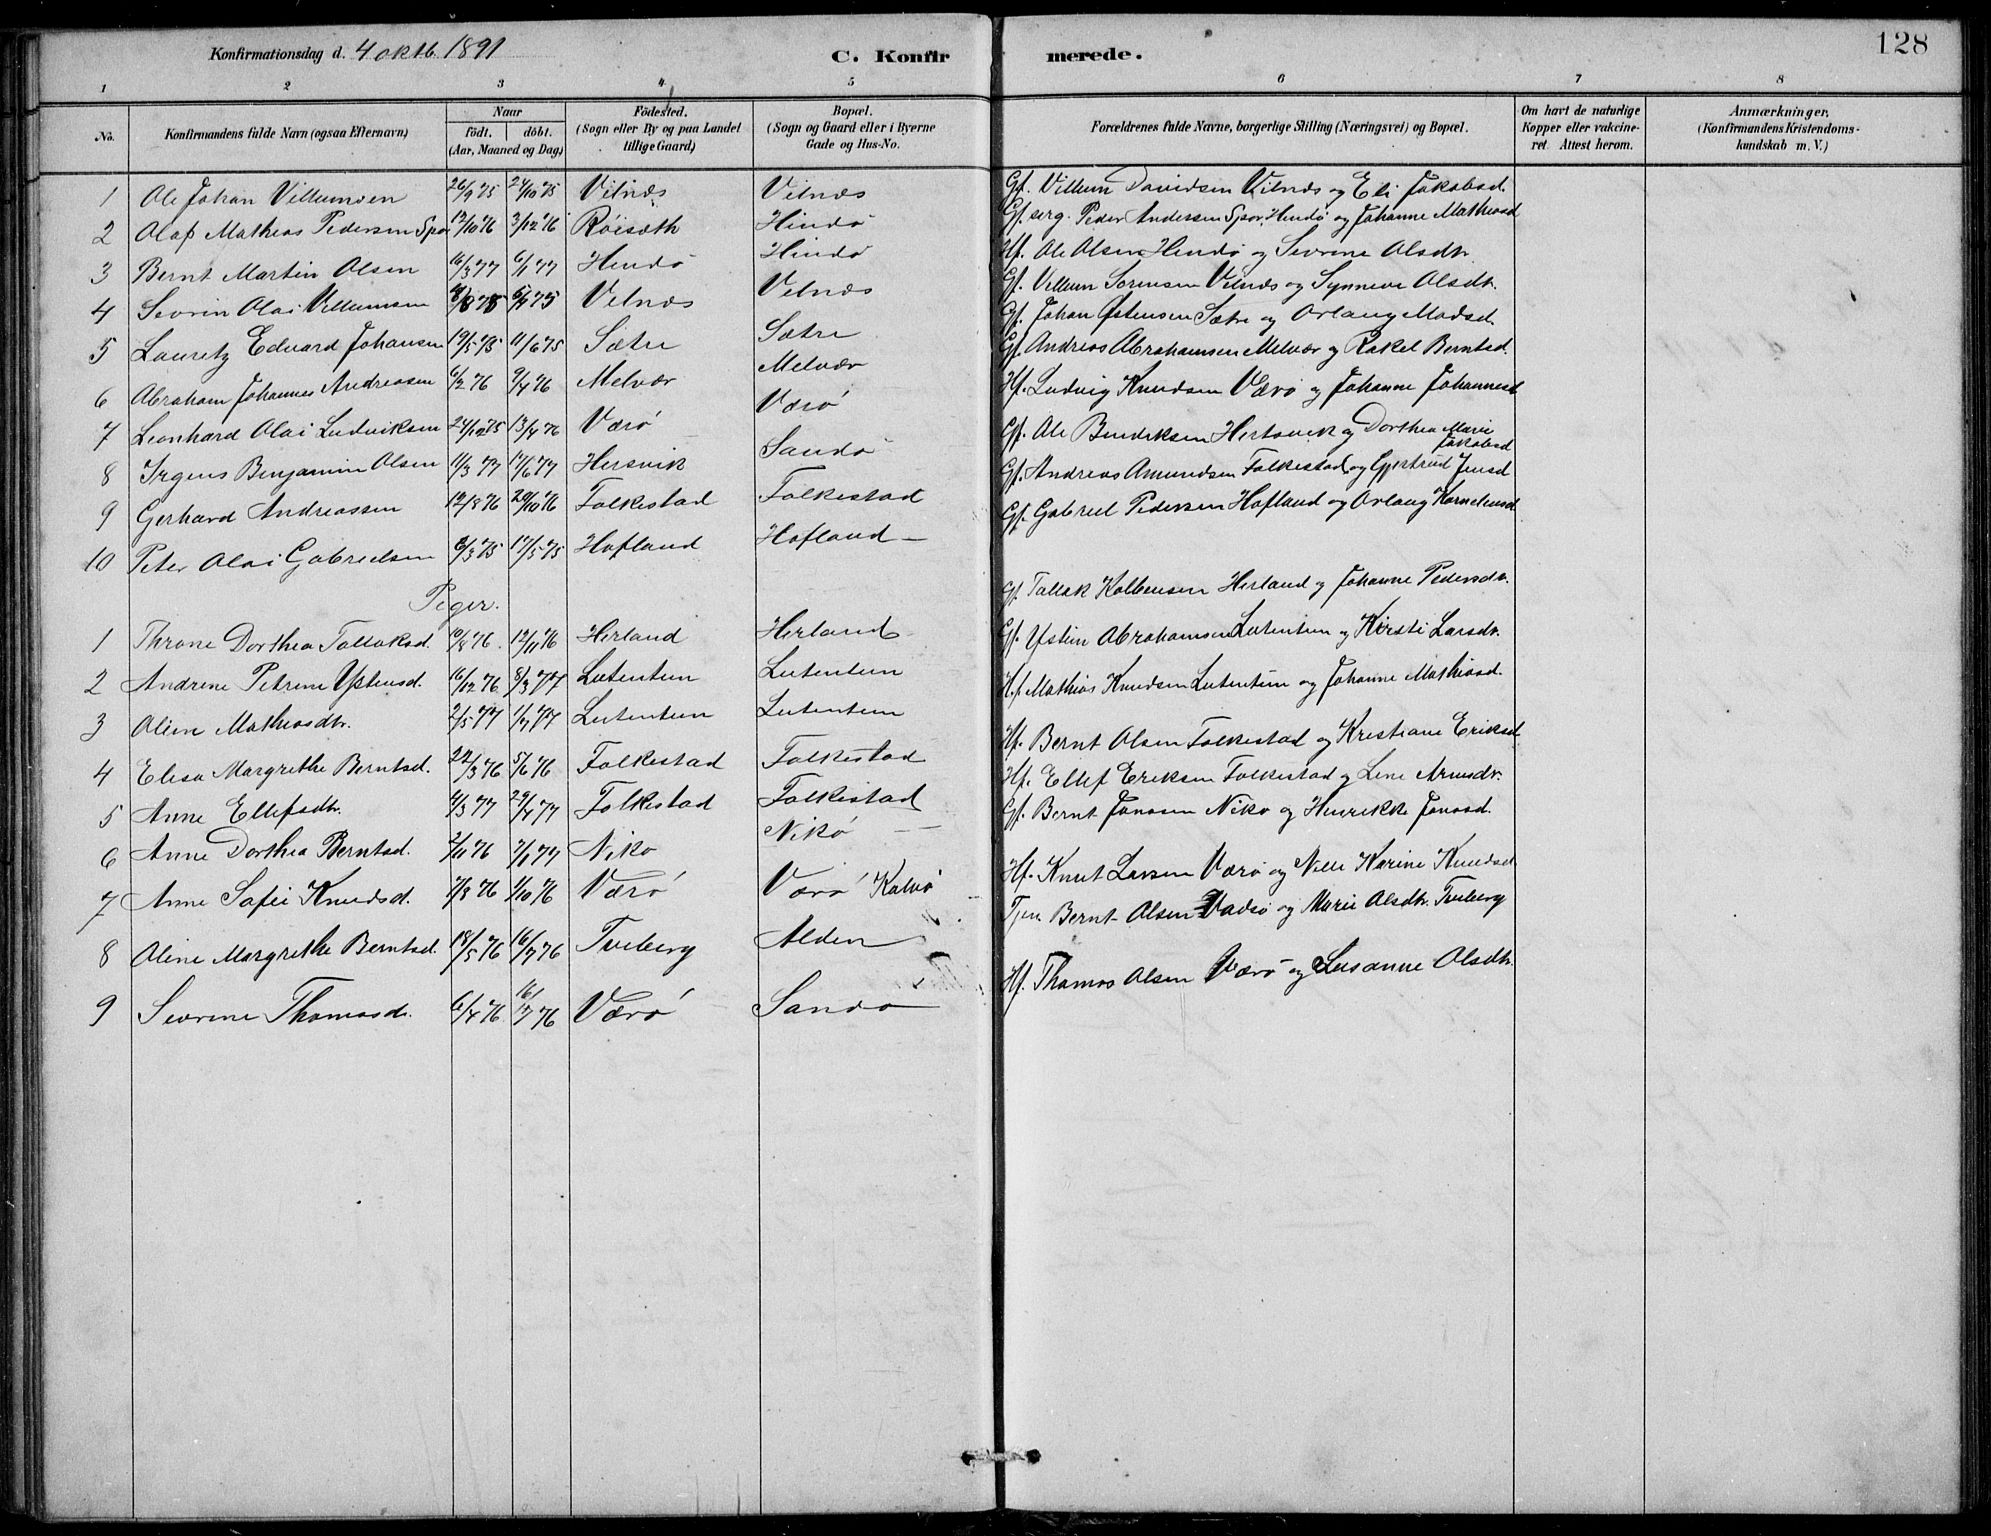 128
Konfirmationsdag d. 4 oktb. 1891 C. Konfirmerede.
1 2 3 4 5 6 7 8
No. Konfirmandens fulde Navn (ogsaa Efternavn) Naar födt. döbt. (Aar, Maaned og Dag) Födested. (Sogn eller By og paa Landet tillige Gaard) Bopæl. (Sogn og Gaard eller i Byerne Gade og Hus-No. Forældrenes fulde Navne, borgerlige Stilling (Næringsvei) og Bopæl. Om havt de naturlige Kopper eller vakcineret. Attest herom. Anmærkninger. (Konfirmandens Kristendomskundskab m. V.)
1 Ole Johan Villumsen 26/9 75 24/10 75 Vilnæs Vilnæs Gf. Villum Davidsen Vilnæs og Eli Jakobsd.
2 Olaf Mathias Pedersen Spor 12/10 76 3/12 76 Röiseth Hindö Gf. serg. Peder Andersen Spor, Hindö og Johanne Mathiasd
3 Bernt Martin Olsen 16/3 77 6/1 77 Hindö Hindö Hf. Ole Olsen Hindö og Sevrine Olsdtr.
4 Sevrin Olai Villumsen 6/7 75 Vilnæs Vilnæs Gf. Villum Sörensen Vilnæs og Synneve Olsdtr.
5 Lauretz Edvard Johansen 19/5 75 11/6 75 Sætre Sætre Gf. Johan Östensen Sætre og Orlaug Madsd.
6 Abraham Johannes Andreasen 6/2 76 9/4 76 Melvær Melvær Gf. Andreas Abrahamsen Melvær og Rakel Berntsd.
7 Leonhard Olai Ludviksen 24/12 75 13/4 76 Værö Værö Hf. Ludvig Knudsen Værö og Johanne Johannesd
8 Irgens Benjamin Olsen 11/3 77 17/6 77 Hersvik Sandö Gf. Ole Bendiksen Hertsvik og Dorthea Marie Jakobsd
9 Gerhard Andreassen 12/8 76 29/10 76 Folkestad Folkestad Gf. Andreas Amundsen Folkestad og Gjertrud Jensd
10 Peter Olai Gabrielsen 8/3 75 17/5 75 Hofland Hofland Gf. Gabriel Pedersen Hofland og Orlaug Korneliusd
Piger.
1 Thrane Dorthea Tollaksd. 10/8 76. 12/11 76 Herland Herland Gf. Tollak Kolbensen Herland og Johanne Pedersdtr.
2 Andrene Petrine Ystensd. 16/12 76 8/3 77 Lutentun Lutentun Gf. Ysten Abrahamsen Lutentun og Kirsti Larsdtr.
3 Oline Mathiasdtr. 2/5 77 1/7 77 Lutentun Lutentun Hf. Mathias Knudsen Lutentun og Johanne Mathiasd.
4 Elisa Margrethe Berntsd. 22/3 76 5/6 76 Folkestad Folkestad Hf. Bernt Olsen Folkestad og Kristiane Eriksd
5 Anne Ellefsdtr. 4/3 77 29/4 77 Folkestad Folkestad Hf. Ellef Eriksen Folkestad og Lene Arnesdtr.
6 Anne Dorthea Berntsd. 2/11 76 7/1 77 Nikö Nikö Gf. Bernt Jonasen Nikö og Henrikke Jonasd.
7 Anne Sofie Knudsd. 7/8 76 1/10 76 Værö Værö Kalvö Hf. Knut Larsen Værö og Nille Karine Knudsd
8 Oline Margrethe Berntsd. 18/5 76 16/7 76 Tveberg Alden Tjen. Bernt Olsen Vadsö og Marie Olsdtr. Tveberg
9 Sevrine Thomasd. 6/4 76 16/7 76 Værö Sandö Hf. Thomas Olsen Værö og Susanne Olsdtr.